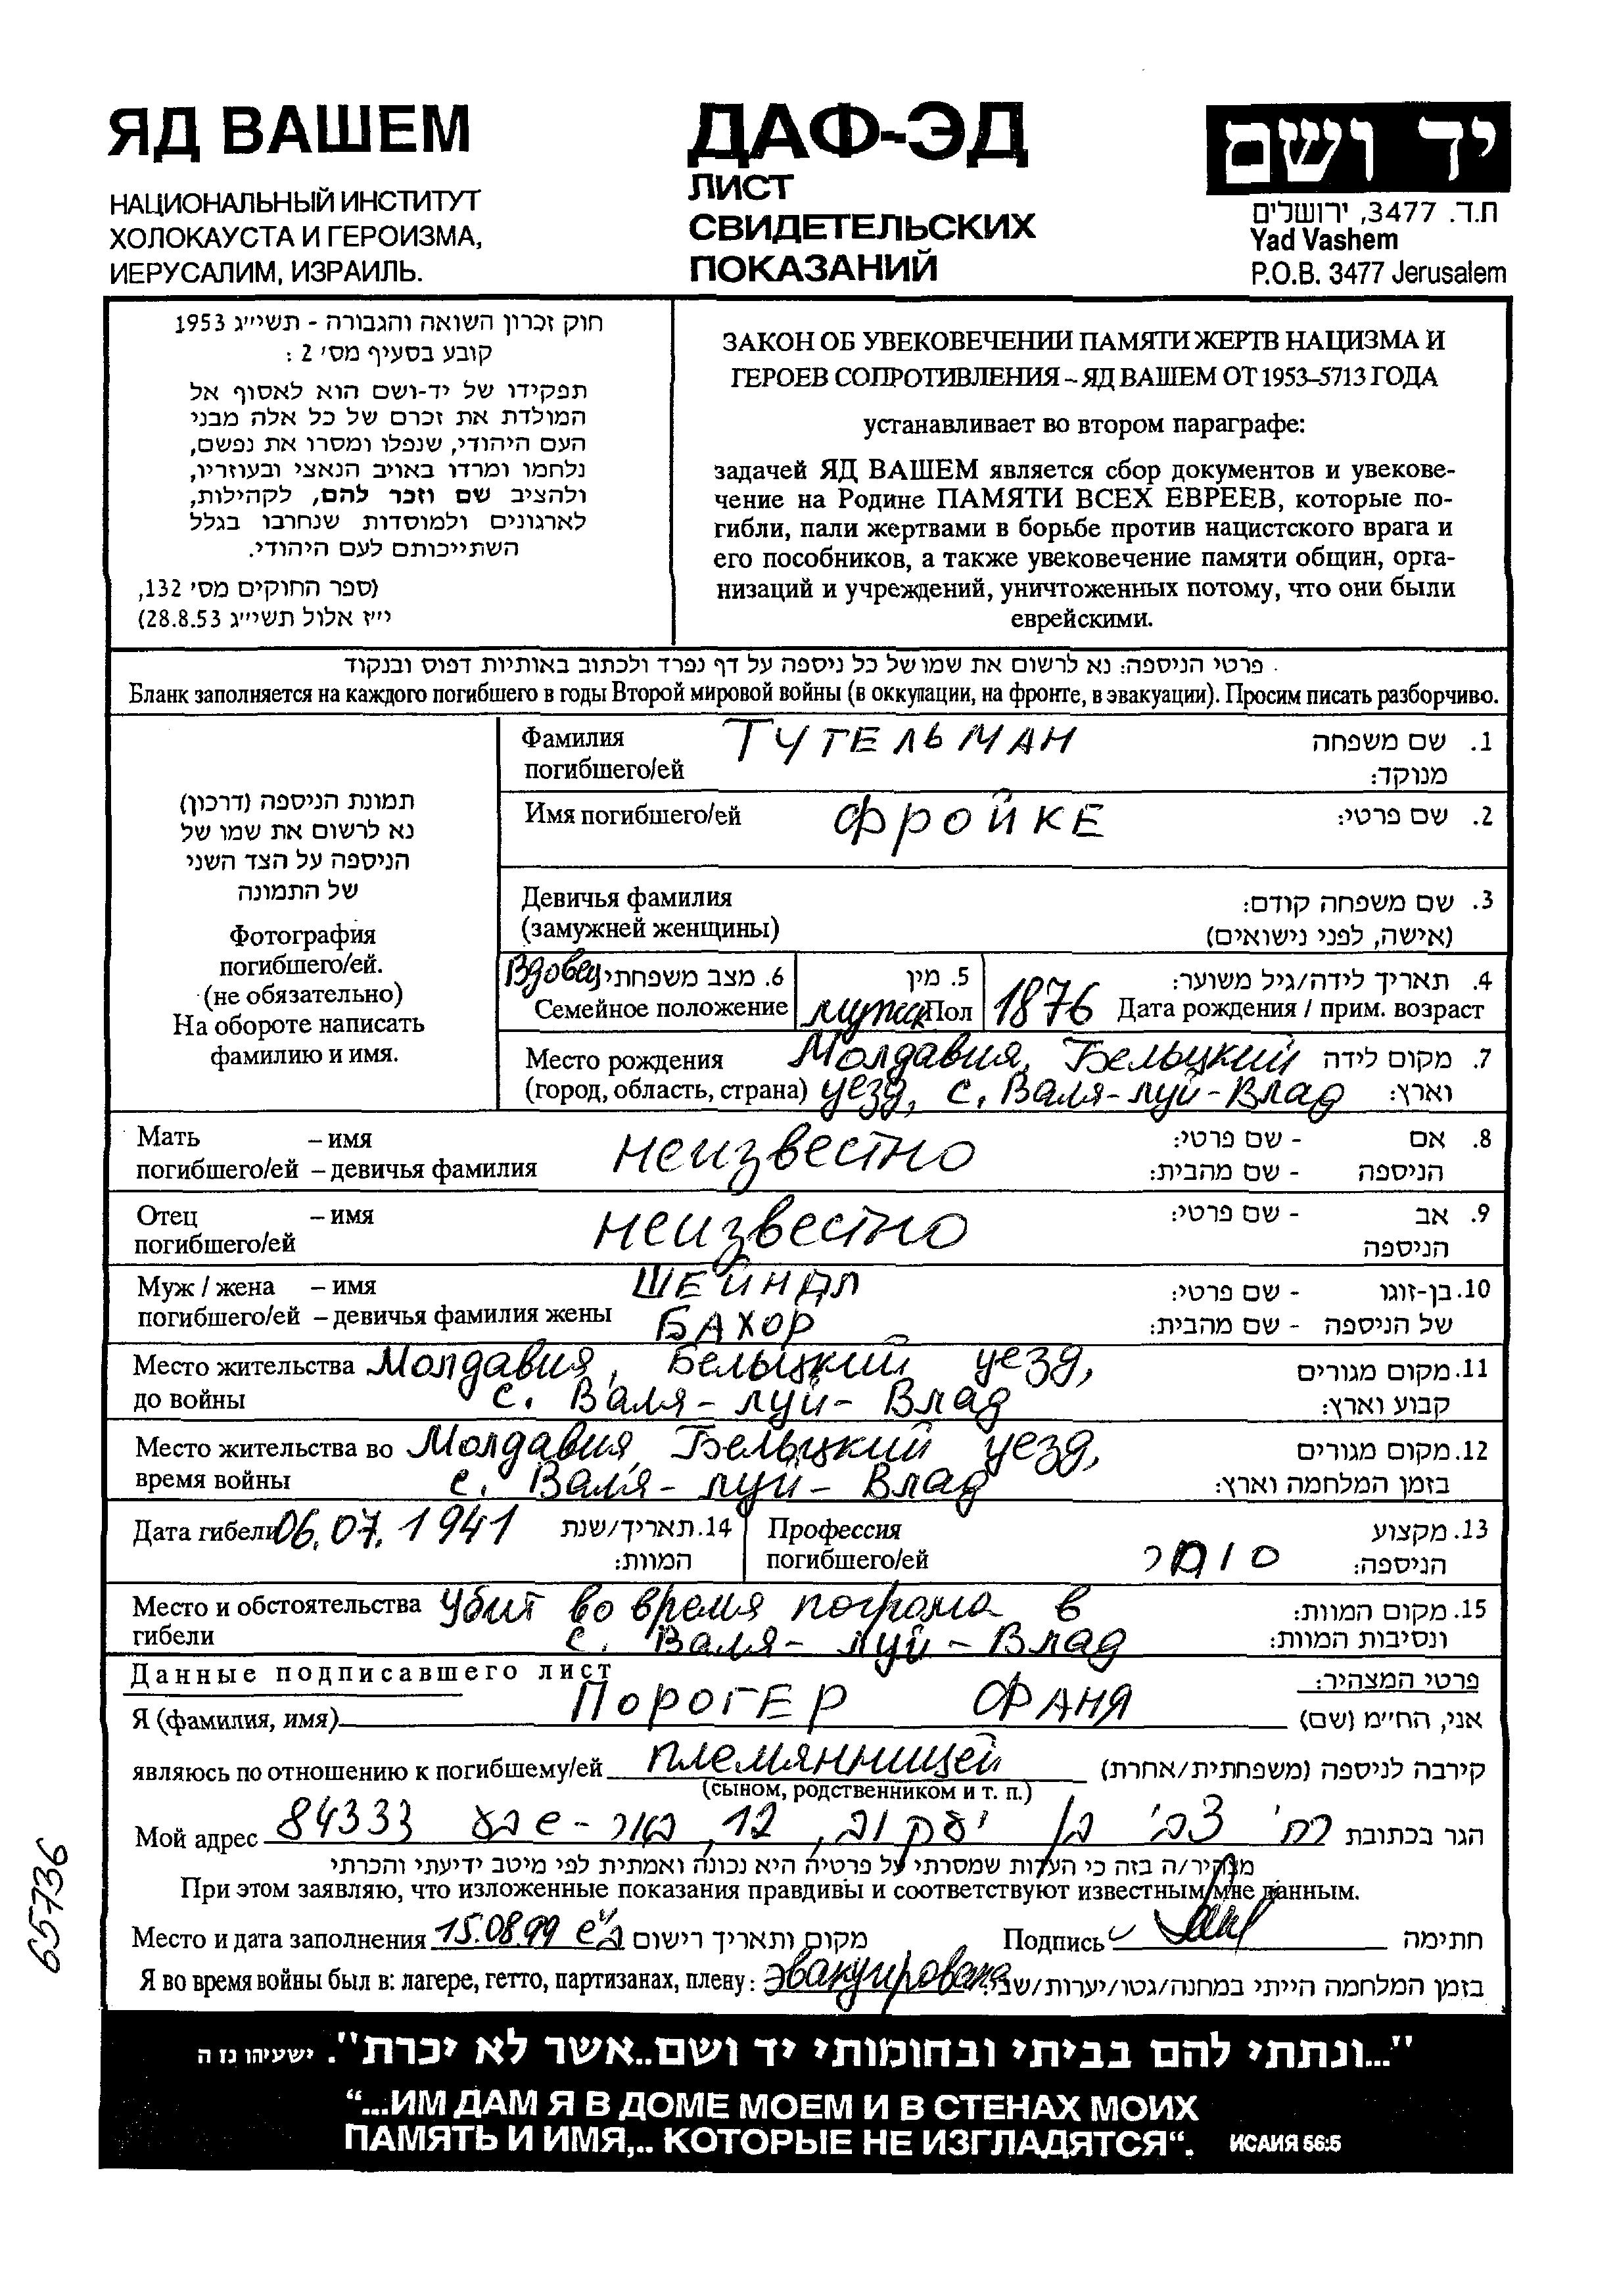 ЯД ВАШЕМ
НАЦИОНАЛЬНЫЙ ИНСТИТУТ
ХОЛОКАУСТА И ГЕРОИЗМА,
ИЕРУСАЛИМ, ИЗРАИЛЬ.
ДАФ-ЭД
ЛИСТ
СВИДЕТЕЛЬСКИХ
ПОКАЗАНИЙ
יד ושם
ת.ד. 3477, ירושלים
Yad Vashem
P.O.B. 3477 Jerusalem
חוק זכרון השואה והגבורה - תשי״ג 1953
קובע בסעיף מס׳ 2 :
תפקידו של יד-ושם הוא לאסוף אל
המולדת את זכרם של כל אלה מבני
העם היהודי, שנפלו ומסרו את נפשם,
נלחמו ומרדו באויב הנאצי ובעוזריו,
ולהציב שם וזכר להם, לקהילות,
לארגונים ולמוסדות שנחרבו בגלל
השתייכותם לעם היהודי.
(ספר החוקים מס׳ 132,
י״ז אלול תשי״ג 28.8.53)
ЗАКОН ОБ УВЕКОВЕЧЕНИИ ПАМЯТИ ЖЕРТВ НАЦИЗМА И
ГЕРОЕВ СОПРОТИВЛЕНИЯ – ЯД ВАШЕМ ОТ 1953–5713 ГОДА
устанавливает во втором параграфе:
задачей ЯД ВАШЕМ является сбор документов и увекове-
чение на Родине ПАМЯТИ ВСЕХ ЕВРЕЕВ, которые по-
гибли, пали жертвами в борьбе против нацистского врага и
его пособников, а также увековечение памяти общин, орга-
низаций и учреждений, уничтоженных потому, что они были
еврейскими.
פרטי הניספה: נא לרשום את שמו של כל ניספה על דף נפרד ולכתוב באותיות דפוס ובנקוד
Бланк заполняется на каждого погибшего в годы Второй мировой войны (в оккупации, на фронте, в эвакуации). Просим писать разборчиво.
תמונת הניספה (דרכון)
נא לרשום את שמו של
הניספה על הצד השני
של התמונה
Фотография
погибшего/ей.
(не обязательно)
На обороте написать
фамилию и имя.
Фамилия ТУТЕЛЬМАН 1. שם משפחה
погибшего/ей מנוקד:
Имя погибшего/ей ФРОЙКЕ 2. שם פרטי:
Девичья фамилия 3. שם משפחה קודם:
(замужней женщины) (אישה, לפני נישואים)
Вдовец 6. מצב משפחתי 5. מין 4. תאריך לידה/גיל משוער:
Семейное положение мужск Пол 1876 Дата рождения / прим. возраст
Место рождения Молдавия, Бельцкий 7. מקום לידה
(город, область, страна) уезд, с. Валя-луй-Влад וארץ:
Мать – имя 8. אם - שם פרטי:
погибшего/ей – девичья фамилия неизвестно הניספה - שם מהבית:
Отец – имя неизвестно 9. אב - שם פרטי:
погибшего/ей הניספה
Муж / жена – имя ШЕЙНДЛ 10. בן-זוגו - שם פרטי:
погибшего/ей – девичья фамилия жены БАХОР של הניספה - שם מהבית:
Место жительства Молдавия, Бельцкий уезд, 11. מקום מגורים
до войны с. Валя-луй-Влад קבוע וארץ:
Место жительства во Молдавия, Бельцкий уезд, 12. מקום מגורים
время войны с. Валя-луй-Влад בזמן המלחמה וארץ:
Дата гибели 06.07.1941 14. תאריך/שנת Профессия 13. מקצוע
המוות: погибшего/ей סוחר הניספה:
Место и обстоятельства убит во время погрома в 15. מקום המוות:
гибели с. Валя-луй-Влад ונסיבות המוות:
Данные подписавшего лист פרטי המצהיר:
Я (фамилия, имя) ПОРОГЕР ФАНЯ אני, הח״מ (שם)
являюсь по отношению к погибшему/ей племянницей קירבה לניספה (משפחתית/אחרת)
(сыном, родственником и т. п.)
Мой адрес רח' צבי בן יעקוב, 12, באר-שבע 84333 הגר בכתובת
מצהיר/ה בזה כי העדות שמסרתי על פרטיה היא נכונה ואמתית לפי מיטב ידיעתי והכרתי
При этом заявляю, что изложенные показания правдивы и соответствуют известным мне данным.
Место и дата заполнения 15.08.99 ב"ש מקום ותאריך רישום Подпись חתימה
Я во время войны был в: лагере, гетто, партизанах, плену: эвакуирована בזמן המלחמה הייתי במחנה/גטו/יערות/שבי:
65736
"...ונתתי להם בביתי ובחומותי יד ושם..אשר לא יכרת". ישעיהו נז ה
“...ИМ ДАМ Я В ДОМЕ МОЕМ И В СТЕНАХ МОИХ
ПАМЯТЬ И ИМЯ,.. КОТОРЫЕ НЕ ИЗГЛАДЯТСЯ“. ИСАИЯ 56:5